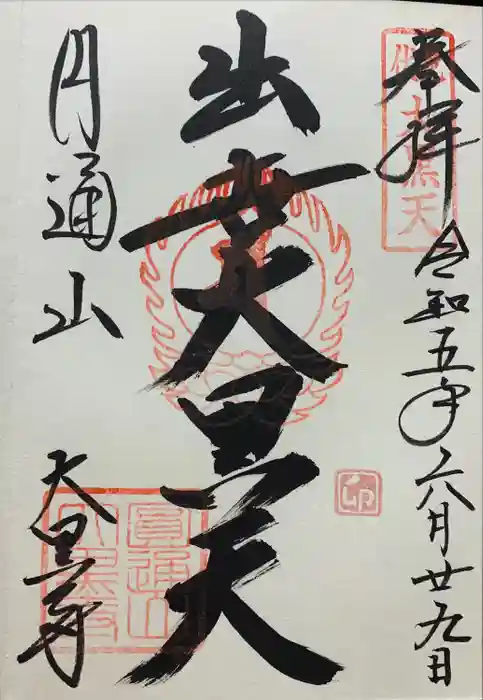 奉拝 令和五年六月廿九日
出世大黒天
円通山
大黒寺
圓通山
大黒寺